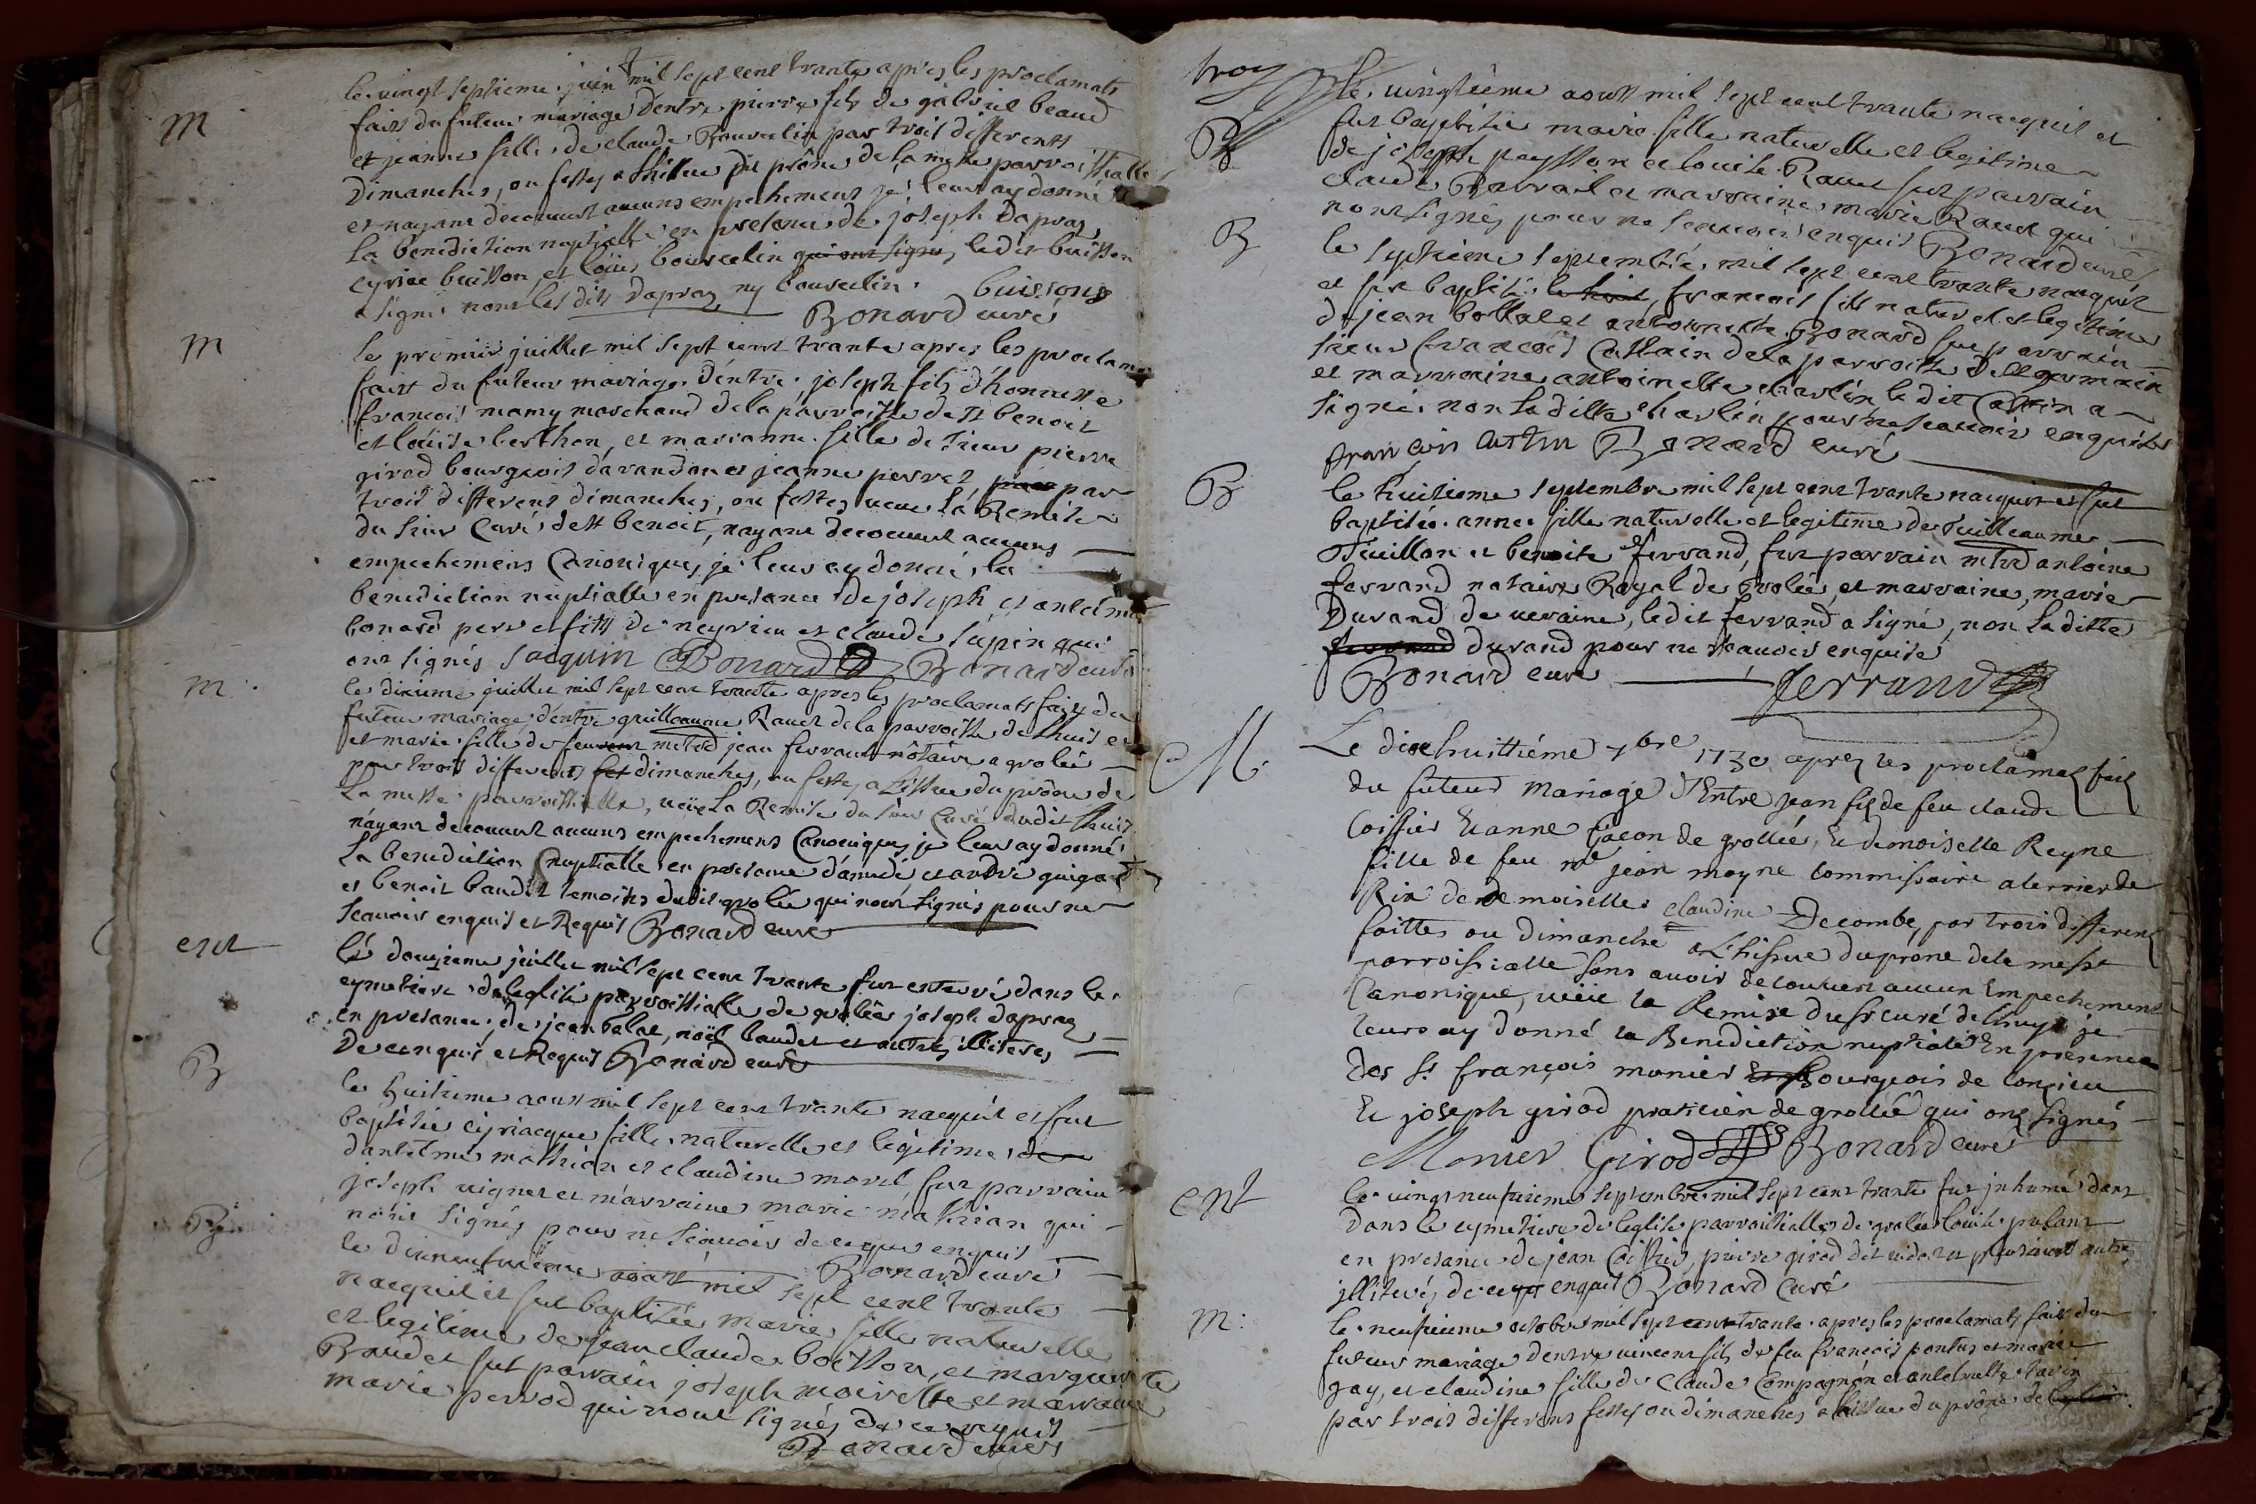 m
le vingt septieme juin mil sept cent trante apres les proclamats
fairs du futeur mariage dentre pierre fils de gabriel beaud
et jeanne fille de claude Bourcelin par trois differents
Dimanches, ou festes a lissue du prône de la messe parroissialle
et nayant decouvert aucuns empechemens je leur ay donné
la benediction nuptialle en presence de joseph Dapraz
cyriae buisson, et loüis bourcelin qui ont signé, le dit buisson
a signé non les dits Dapraz ny bourcelin. buisson
Bonard curé
m
le premier juillet mil sept cent trante apres les proclamas
fait du futeur mariage dentre joseph fils d'honneste
francois mamy marchand de la parroisse de st benoit
et loüise berthon, et marianne fille de sieur pierre
girod bourgeois davandon et jeanne perret par
trois differens dimanches, ou festes veue la Remise
du sieur Curé de st benoit, nayant decouvert aucuns
empechemens Canoniques je leur ay donné la
benediction nuptialle en presance de joseph et antelme
bonard pere et fils de neyrieu et claude lupin qui
ont signés Jacquin Bonard Bonard curé
m.
le dixieme juillet mil sept cent trante apres les proclamats fais du
futeur mariage dentre guilleaume Rauet de la parroisse de lhuis et
et marie fille de feu mtre jean ferrand nôtaire a grolée
par trois differents dimanches, ou festes, a lissue du prône de
la messe parroissialle, veüe la Remise du sieur Curé dudit lhuis
nayant decouvert aucuns empechemens Canoniques je leur ay donné
la benediction nuptialle en presance damedé et andré guigard
et benoit baudet temoins dudit grolée qui nont signés pour ne
scavoir enquis et Requis Bonard curé
ent
le douzieme juillet mil sept cent trante fut enterré dans le
cymetiere de leglise parroissialle de grolée joseph dapraz
en presance de jean balae, noël baudet et autres illiteres
De ce enquis et Requis Bonard curé
B
le huitieme aoust mil sept cent trante nacquit et fut
baptisée ciriacque fille naturelle et legitime de
dantelme mathian et claudine morel fut parrain
joseph vignet et marraine marie mathian qui
nont signés pour ne scavoir de ce que enquis
Bonard curé
B
le dixneufvieme aoust mil sept cent trante
nacquit et fut baptisée marie fille naturelle
et legitime de jean claude boisson, et marguerite
Baudet fut parrain joseph moirette et marraine
marie perrod qui nont signés de ce requis
Bonard curé
troy
B
le vingtieme aoust mil sept cent trante nacquit et
fut baptisée marie fille naturelle et legitime
de joseph peysson et louise Rauet fut parrain
claude Barrail et marraine marie Rauet qui
nont signés pour ne scavoir enquis Bonard curé
B
le septieme septembre mil sept cent trante nacquit
et fut baptisé francois fils naturel et legitime
de jean bollat et antoinette Bonard fut parrain
sieur francois Cattin de la parroisse de st germain
et marraine antoinette charlin le dit Cattin a
signé, non la ditte charlin pour ne scavoir enquise
francois cattin Bonard curé
B
le huitieme septembre mil sept cent trante nacquit et fut
baptisée anne fille naturelle et legitime de Guilleaume
Teuillon et benoite ferrand, fut parrain mtre antoine
ferrand notaire Royal de grolée, et marraine, marie
Durand de veraine, le dit ferrand a signé, non la ditte
durand pour ne scavoir enquise
Bonard curé Ferrand
M.
Le dixhuittiéme 7bre 1730 aprez les proclamaz fait
du futeur Mariage D'Entre jean fils de feu claude
Coiffier Et anne façon de grollée, Et demoiselle Reyne
fille de feu me jean moyne commissaire a terrier de
Rix de demoiselle claudine Decombe, par trois differents
faittes ou dimanche a L'hissue du prone dela messe
parroissialle sans avoir decouvert aucun Empechement
Canonique, veüe la Remise du sr curé de lhuys je
leurs ay donné la Benediction nuptiale En presence
des sr françois monier Bourgeois de conzieu
Et joseph girod praticien de grollée qui ont signés
Monier Girod Bonard curé
ent
le vingt neufvieme septembre mil sept cent trante fut inhumé dans
dans le cymetiere de leglise parroissialle de grolée louise
en presance de jean Coiffier, pierre girod dit vidot et plusieurs autres
illiterés de ce enquit Bonard Curé
m:
le neufvieme octobre mil sept cent trante apres les proclamats fais du
futeur mariage dentre vincent fils de feu francois pontus et marie
gay, et claudine fille de Claude Compagnon et antelmette tavin
par trois differens festes ou dimanches a lissue du prône de